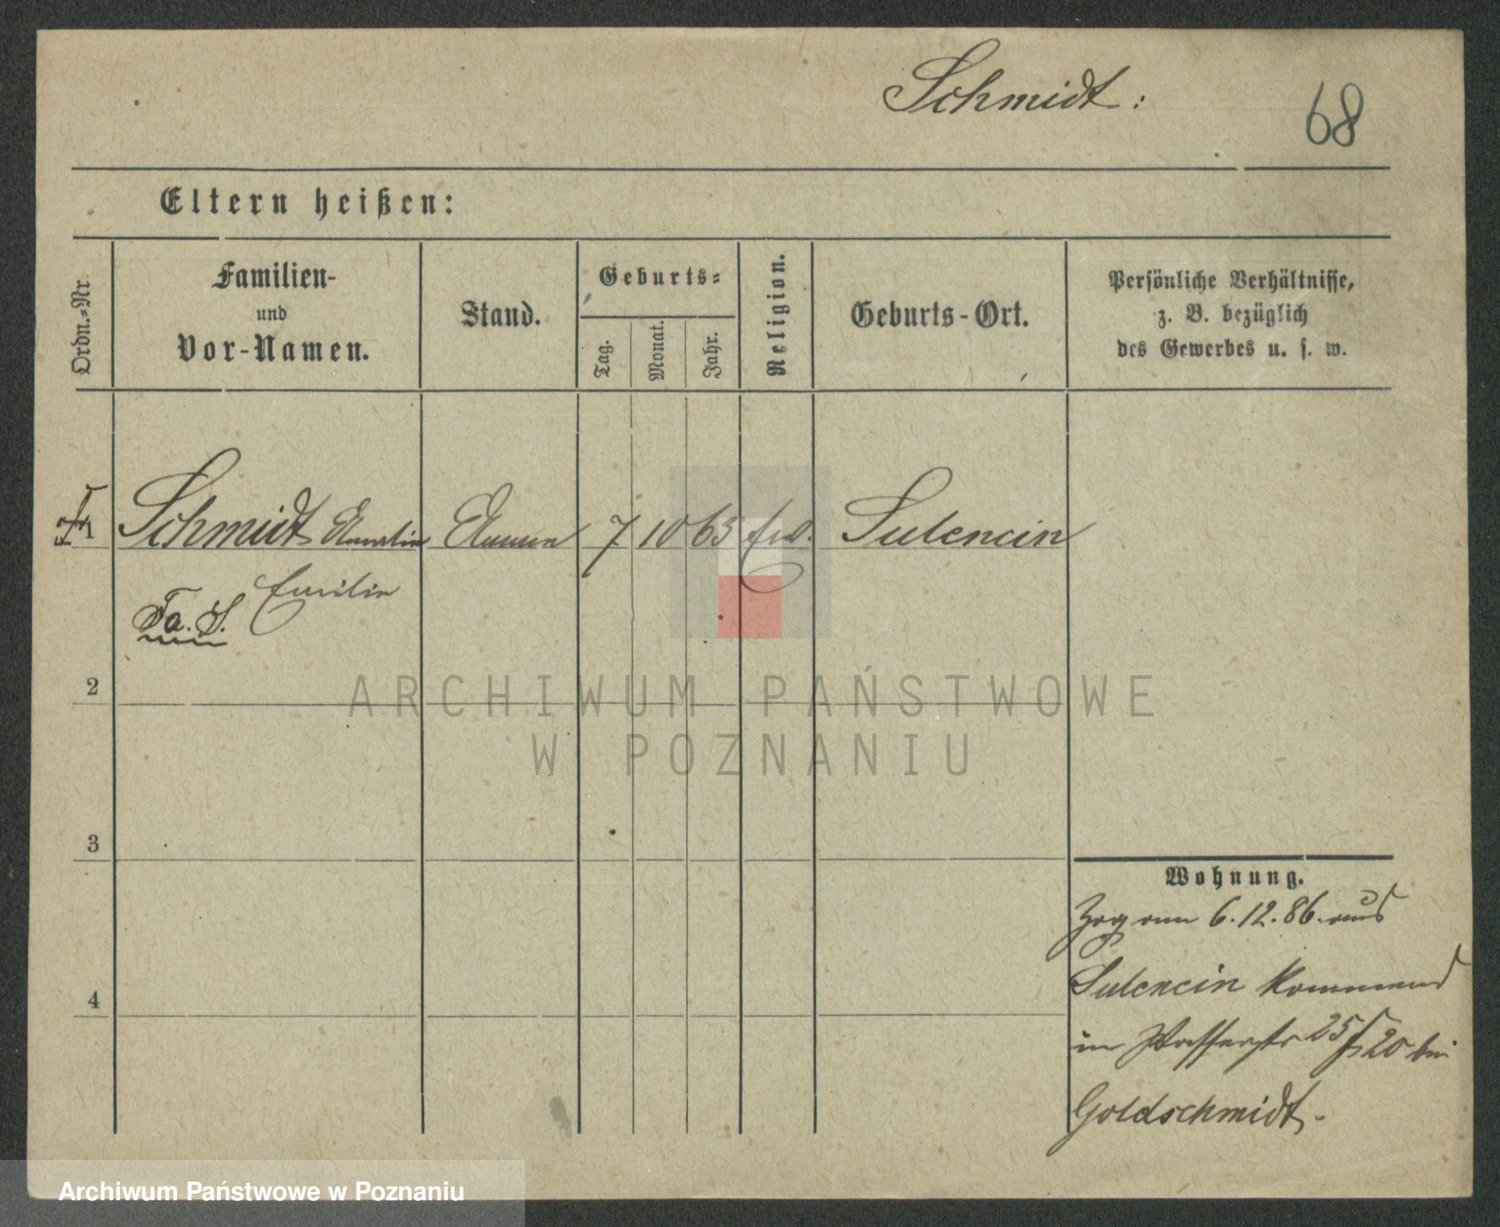 Schmidt:
68
Eltern heißen:
Ordn.-Nr.
Familien-
und
Vor-Namen.
Stand.
Geburts-
Tag.
Monat.
Jahr.
Religion.
Geburts-Ort.
Persönliche Verhältnisse,
z. B. bezüglich
des Gewerbes u. s. w.
Schmidt Amalie Amme 7 10 63 Sulencin
Emilie
Fa. S.
2
3
4
Wohnung.
Zog am 6.12.86. aus
Sulencin kommend
in Wasserstr 25/20 bei
Goldschmidt.
ARCHIWUM PAŃSTWOWE
W POZNANIU
Archiwum Państwowe w Poznaniu